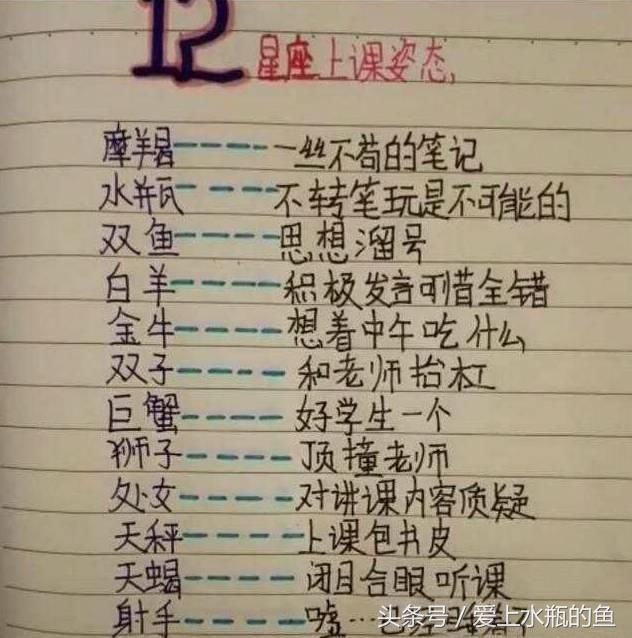 12星座上课姿态,
摩羯-----一丝不苟的笔记
水瓶-----不转笔玩是不可能的
双鱼-----思想溜号
白羊-----积极发言可惜全错
金牛-----想着中午吃什么
双子-----和老师抬杠
巨蟹-----好学生一个
狮子-----顶撞老师
处女-----对讲课内容质疑
天秤-----上课包书皮
天蝎-----闭目合眼听课
射手-----嘘…已
头条号/爱上水瓶的鱼